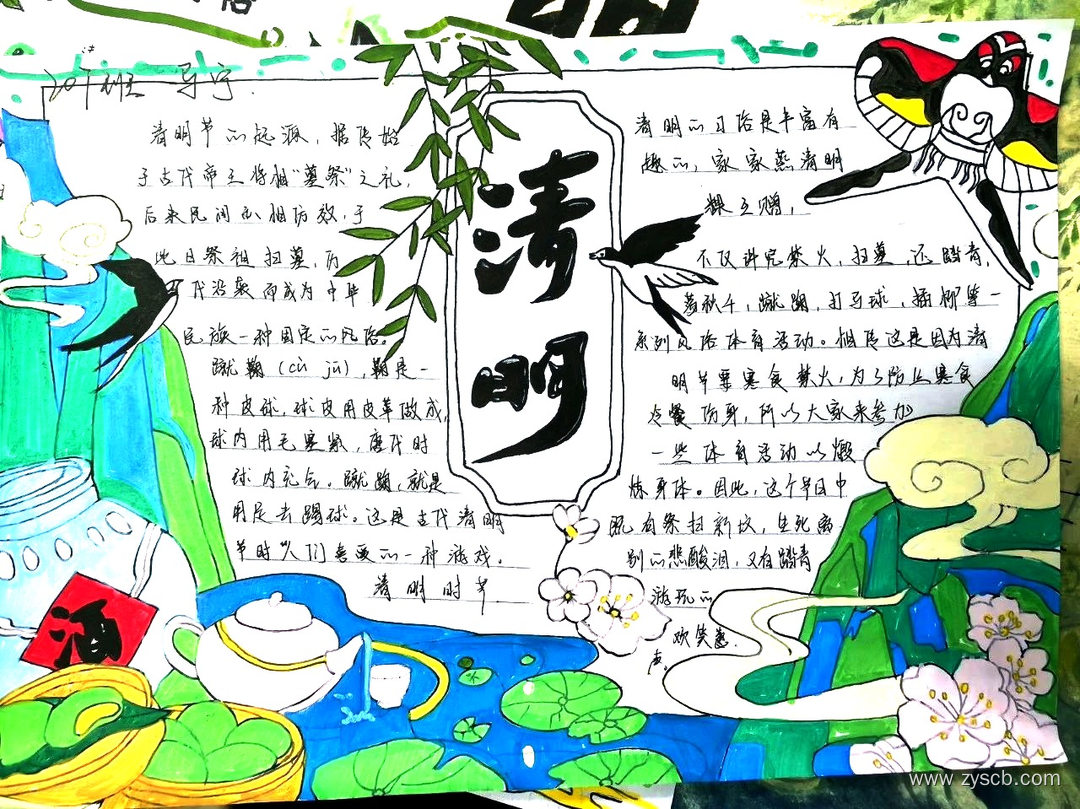 清明
清明节的起源，据传始
于古代帝王将相“墓祭”之礼，
后来民间亦相仿效，于
此日祭祖扫墓，历
代沿袭而成为中华
民族一种固定的风俗。
蹴鞠（cù jū），鞠是一
种皮球，球皮用皮革做成，
球内用毛塞紧，唐代时
球内充气。蹴鞠，就是
用足去踢球。这是古代清明
节时人们喜爱的一种游戏。
清明时节
清明的习俗是丰富有
趣的，家家蒸清明
粿互赠，
不仅讲究禁火，扫墓，还踏青，
荡秋千，蹴鞠，打马球，插柳等一
系列风俗体育活动。相传这是因为清
明节要寒食禁火，为了防止寒食
冷餐伤身，所以大家来参加
一些体育活动以煅
炼身体。因此，这个节日中
既有祭扫新坟，生死离
别的悲酸泪，又有踏青
游玩的
欢笑
声。
酒
www.zyscb.com